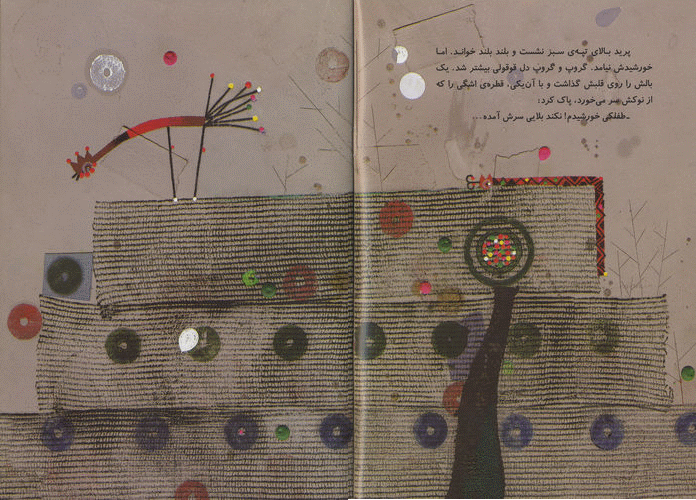 پرید بالای تپه‌ی سبز نشست و بلند بلند خواند. اما
خورشیدش نیامد. گروپ و گروپ دل قوقولی بیشتر شد. یک
بالش را روی قلبش گذاشت و با آن‌یکی، قطره‌ی اشگی را که
از نوکش سر می‌خورد، پاک کرد:
ـ طفلکی خورشیدم! نکند بلایی سرش آمده...